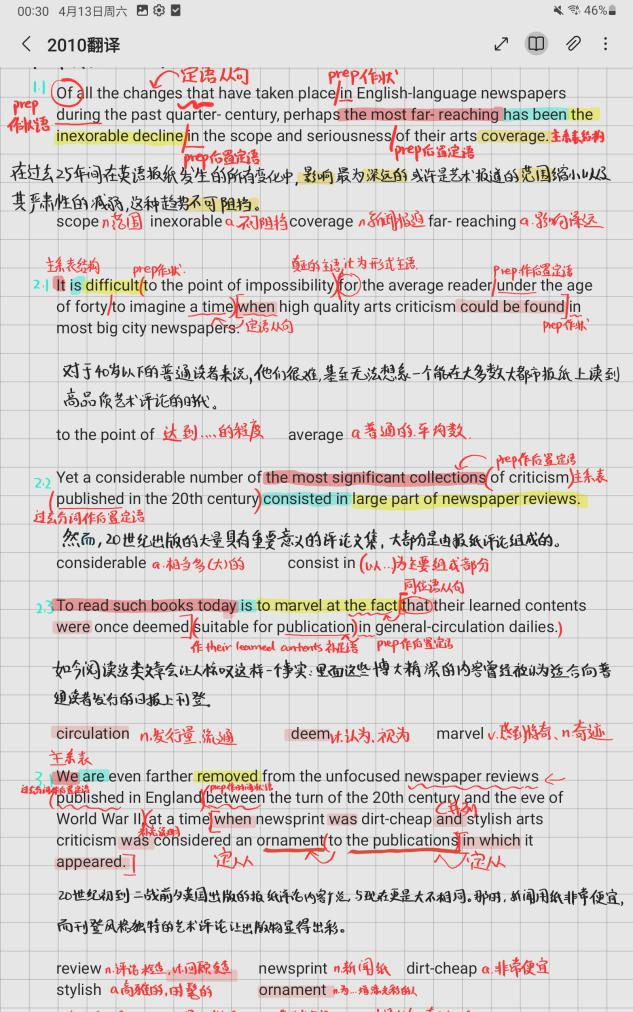 00:30 4月13日周六 46%
2010翻译
定语从句 prep作状
1.1 Of all the changes that have taken place in English-language newspapers
prep作状语 during the past quarter- century, perhaps the most far- reaching has been the
inexorable decline in the scope and seriousness of their arts coverage. 主系表结构
prep后置定语 prep后置定语
在过去25年间在英语报纸发生的所有变化中,影响最为深远的或许是艺术报道的范围缩小以及
其严肃性的减弱,这种趋势不可阻挡。
scope n范围 inexorable a.不可阻挡 coverage n新闻报道 far- reaching a.影响深远
主系表结构 prep作状 真正的主语,it为形式主语. prep作后置定语
2.1 It is difficult to the point of impossibility for the average reader under the age
of forty to imagine a time when high quality arts criticism could be found in
most big city newspapers. 定语从句 prep作状
对于40岁以下的普通读者来说,他们很难,甚至无法想象一个能在大多数大都市报纸上读到
高品质艺术评论的时代。
to the point of 达到....的程度 average a普通的.平均数.
prep作后置定语
2.2 Yet a considerable number of the most significant collections of criticism 主系表
published in the 20th century consisted in large part of newspaper reviews.
过去分词作后置定语
然而,20世纪出版的大量具有重要意义的评论文集,大部分是由报纸评论组成的。
considerable a.相当多(大)的 consist in (以...)为主要组成部分
同位语从句
2.3 To read such books today is to marvel at the fact that their learned contents
were once deemed suitable for publication in general-circulation dailies.)
作their learned contents 补足语 prep作后置定语
如今阅读这类文章会让人惊叹这样一个事实:里面这些博大精深的内容曾经被认为适合向普
通读者发行的日报上刊登。
circulation n.发行量.流通 deem vt.认为.视为 marvel v.感到惊奇、n奇迹
主系表
3.1 We are even farther removed from the unfocused newspaper reviews
过去分词作后置定语 prep作时间状语
published in England between the turn of the 20th century and the eve of
World War II, at a time when newsprint was dirt-cheap and stylish arts
criticism was considered an ornament to the publications in which it
appeared. 定从 定从
20世纪初到二战前夕英国出版的报纸评论内容广泛,与现在更是大不相同。那时,新闻用纸非常便宜,
而刊登风格独特的艺术评论让出版物显得出彩。
review n.评论 检查,vt.回顾 检查 newsprint n.新闻纸 dirt-cheap a.非常便宜
stylish a高雅的,时髦的 ornament n.为...增添光彩的人